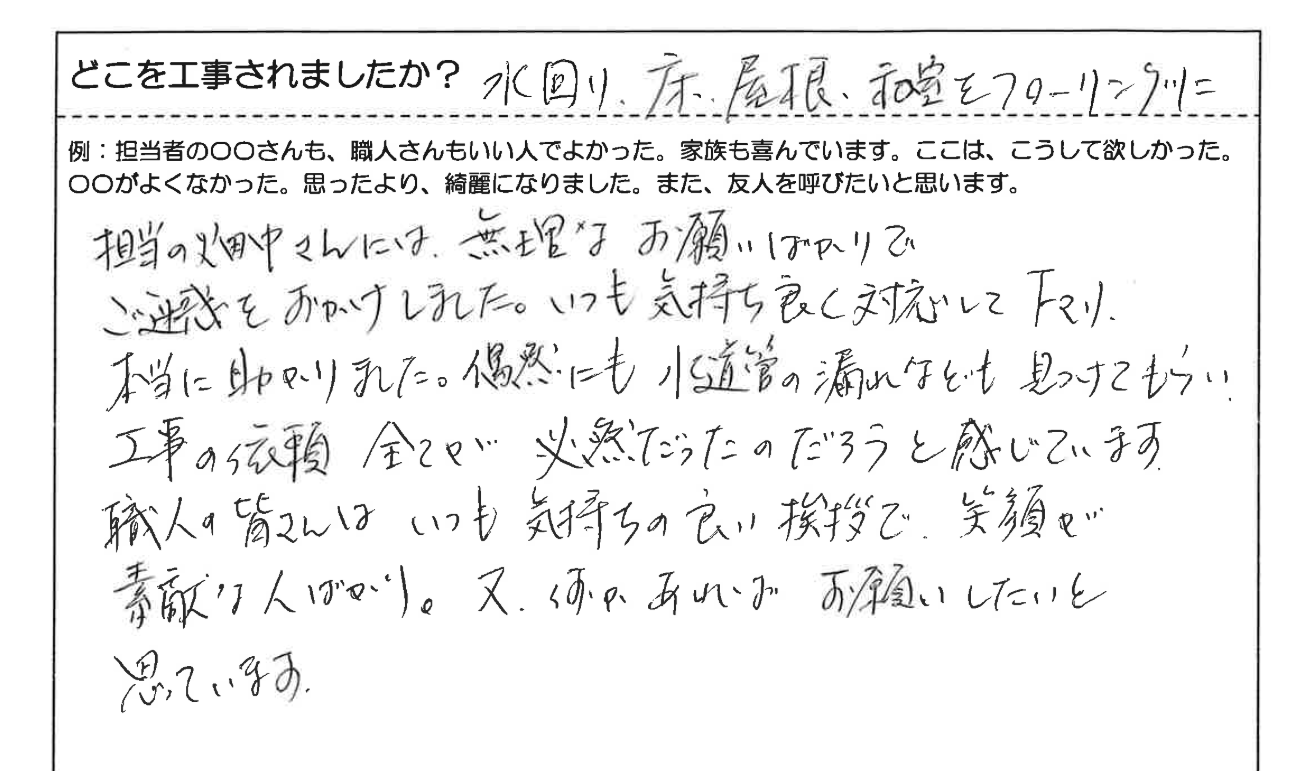 どこを工事されましたか? 水回り、床、屋根、和室をフローリングに
例:担当者の〇〇さんも、職人さんもいい人でよかった。家族も喜んでいます。ここは、こうして欲しかった。
〇〇がよくなかった。思ったより、綺麗になりました。また、友人を呼びたいと思います。
担当の畑中さんには、無理なお願いばかりで
ご迷惑をおかけしました。いつも気持ち良く対応して下さり、
本当に助かりました。偶然にも水道管の漏れなども見つけてもらい
工事の依頼全てが必然だったのだろうと感じています
職人の皆さんはいつも気持ちの良い挨拶で、笑顔が
素敵な人ばかり。又、何かあればお願いしたいと
思っています。